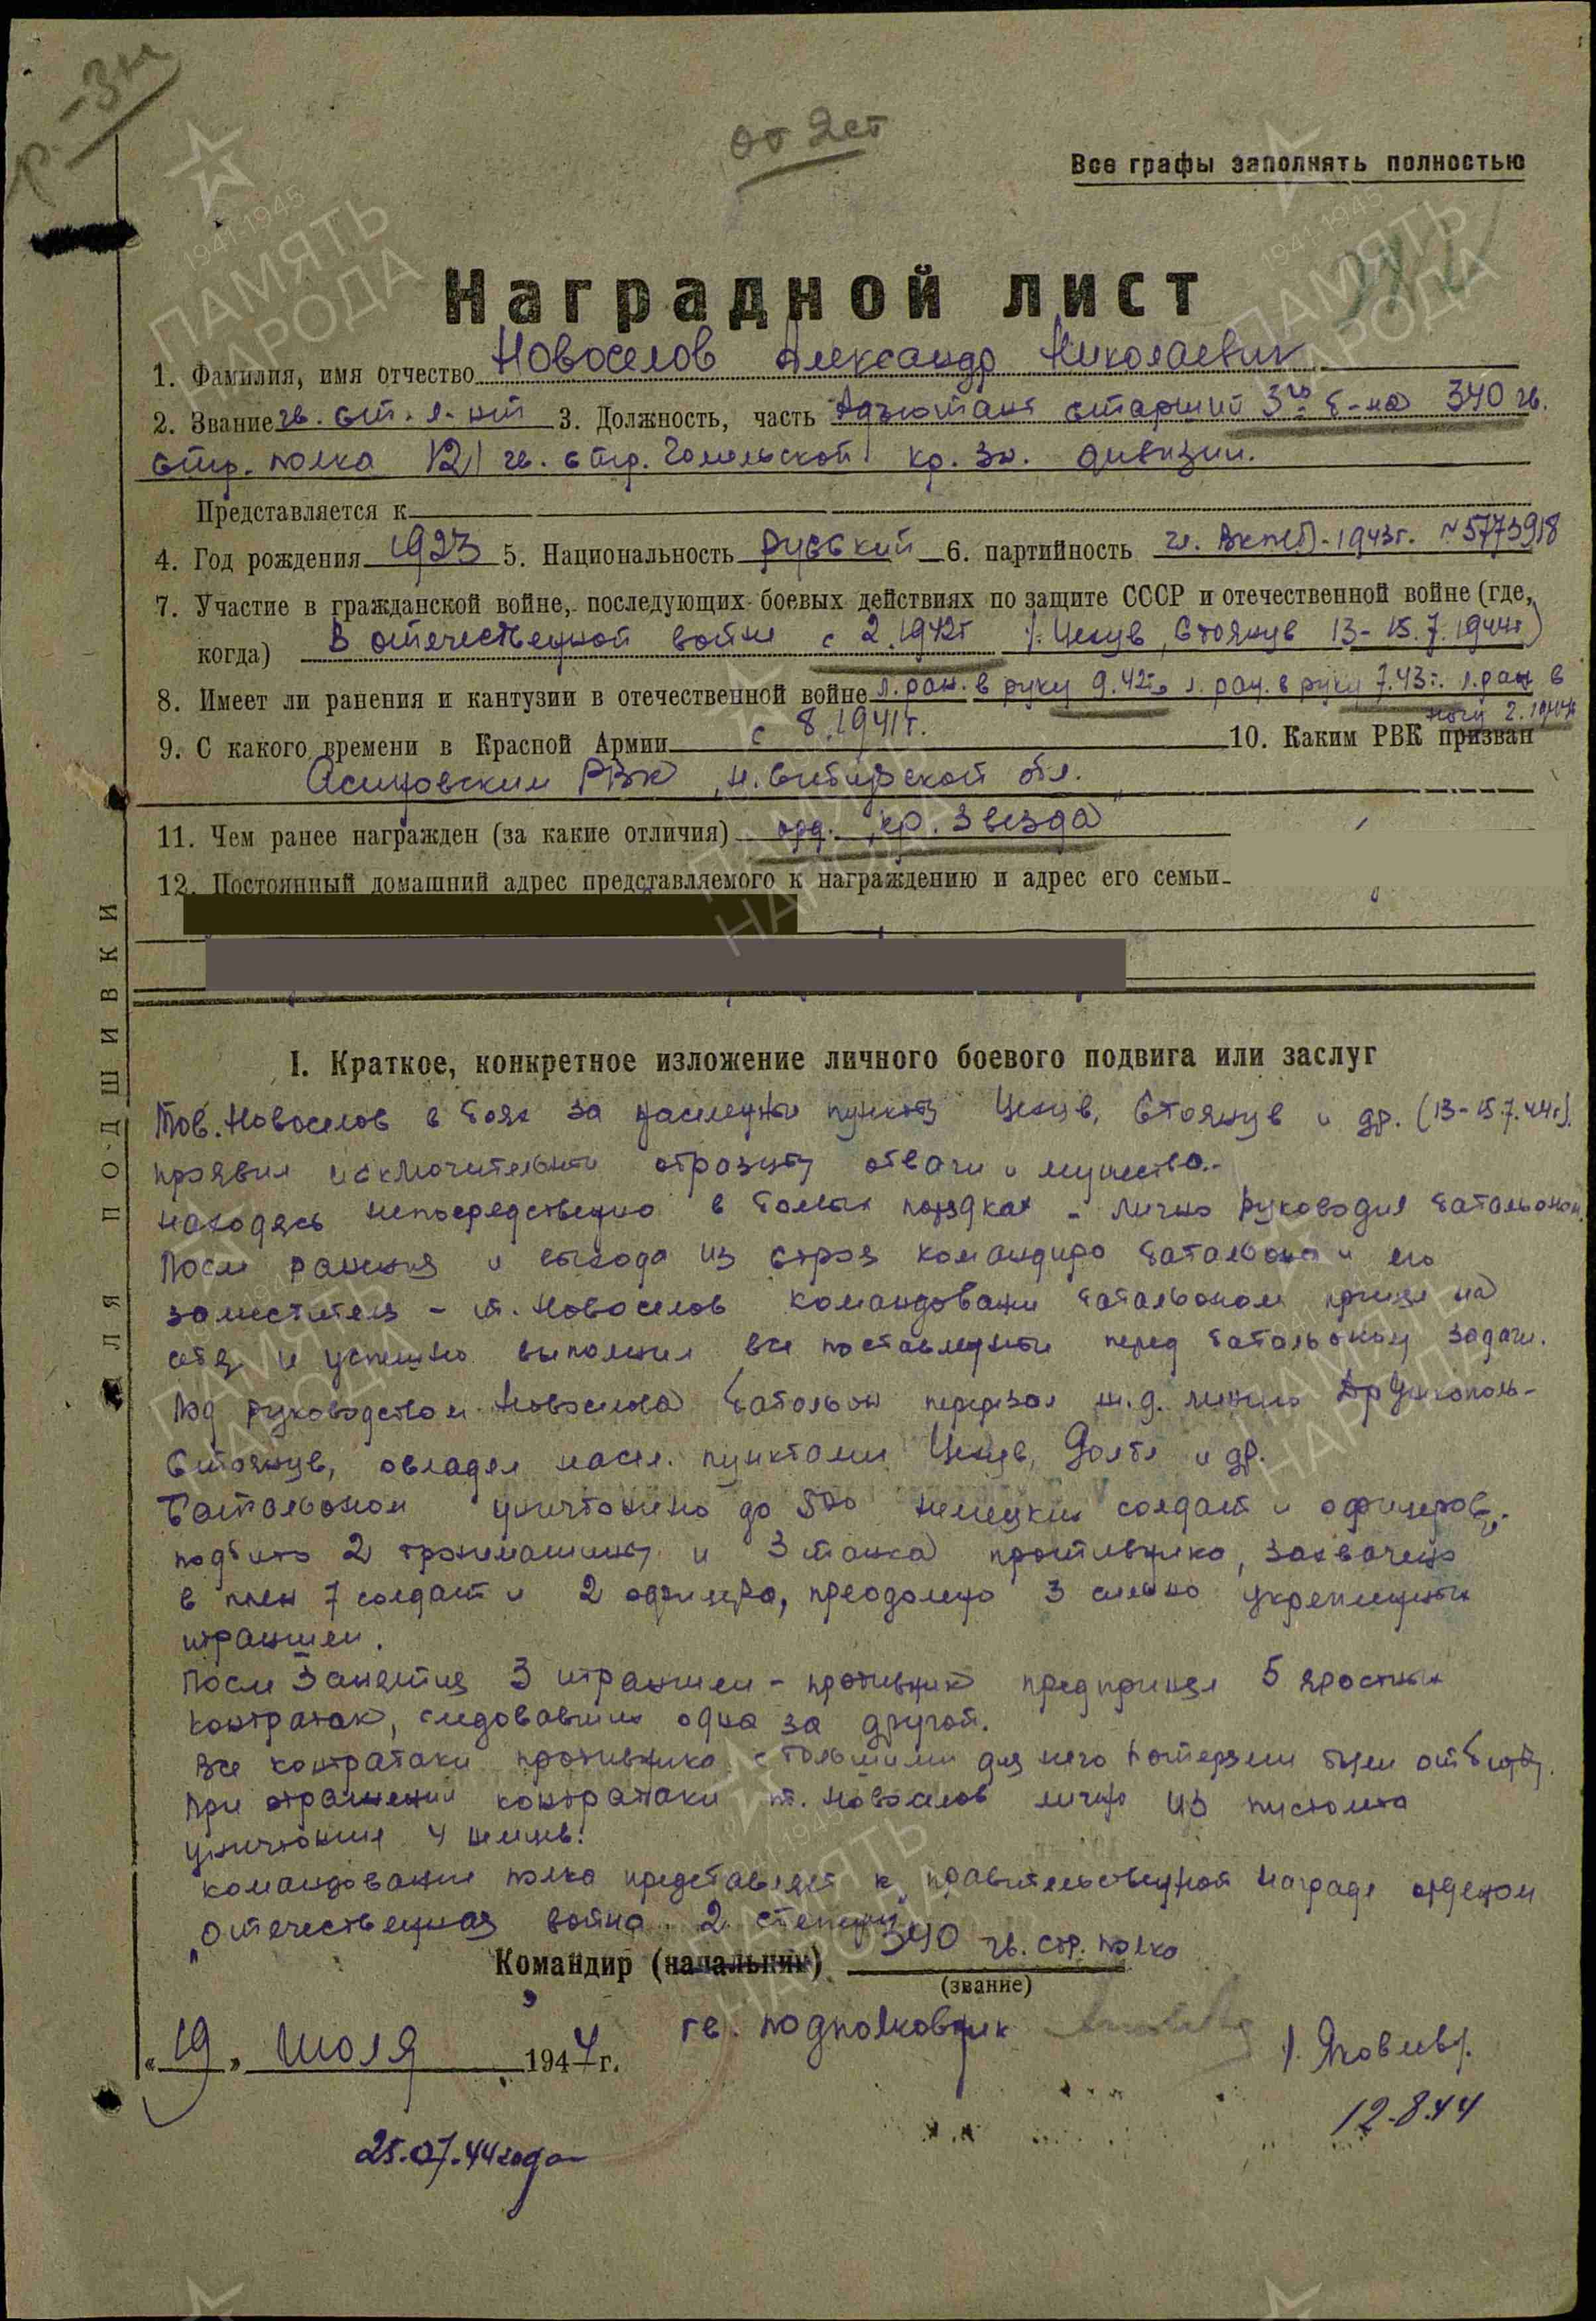 р-зн
ов 2 ст
Все графы заполнять полностью
Наградной лист
1. Фамилия, имя отчество Новоселов Александр Николаевич
2. Звание гв. ст. л-нт 3. Должность, часть Адъютант старший 3го б-на 340 гв.
стр. полка 121 гв. стр. Гомельской кр. зн. дивизии.
Представляется к
4. Год рождения 1923 5. Национальность русский 6. партийность чл. ВКП(б)-1943г. №5773918
7. Участие в гражданской войне, последующих боевых действиях по защите СССР и отечественной войне (где,
когда) В отечественной войне с 2.1942г /: Цехув, Стоянув 13-15.7.1944г)
8. Имеет ли ранения и кантузии в отечественной войне л. ран. в руку 9.42г. л. ран. в руку 7.43г. л. ран в
ногу 2.1944г
9. С какого времени в Красной Армии с 8.1941г. 10. Каким РВК призван
Асиновским РВК, Н. Сибирской обл.
11. Чем ранее награжден (за какие отличия) орд. „Кр. Звезда"
12. Постоянный домашний адрес представляемого к награждению и адрес его семьи
ДЛЯ ПОДШИВКИ
I. Краткое, конкретное изложение личного боевого подвига или заслуг
Тов. Новоселов в боях за населенные пункты Цехув, Стоянув и др. (13-15.7.44г).
проявил исключительный образец отваги и мужества.
находясь непосредственно в боевых порядках - лично руководил батальоном.
После ранения и выхода из строя командира батальона и его
заместителя - т. Новоселов командование батальоном принял на
себя и успешно выполнил все поставленные перед батальоном задачи.
Под руководством Новоселова батальон перерезал ж.д. линию Дружкополь-
Стоянув, овладел насел. пунктами Цехув, и др.
Батальоном уничтожено до 500 немецких солдат и офицеров,
подбито 2 бронемашины и 3 танка противника, захвачено
в плен 7 солдат и 2 офицера, преодолено 3 сильно укрепленных
траншеи.
После занятия 3 траншеи - противник предпринял 5 яростных
контратак, следовавших одна за другой.
Все контратаки противника с большими для него потерями были отбиты.
При отражении контратаки т. Новоселов лично из пистолета
уничтожил 4 немцев.
Командование полка представляет к правительственной награде орденом
„Отечественная война 2 степени"
Командир (начальник) 340 гв. стр. полка
(звание)
гв. подполковник /. Яковлев/.
«19» июля 1944г.
12.8.44
25.07.44 года
1941-1945
ПАМЯТЬ
НАРОДА